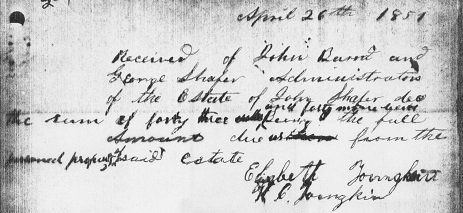 April 26th 1851
Received of John Barnd and
George Shafer Administrators
of the Estate of John Shafer dec
and forty nine
the sum of forty three being the full
Amount due from the
personal property said estate
Elizabeth Youngkin
H. C. Youngkin